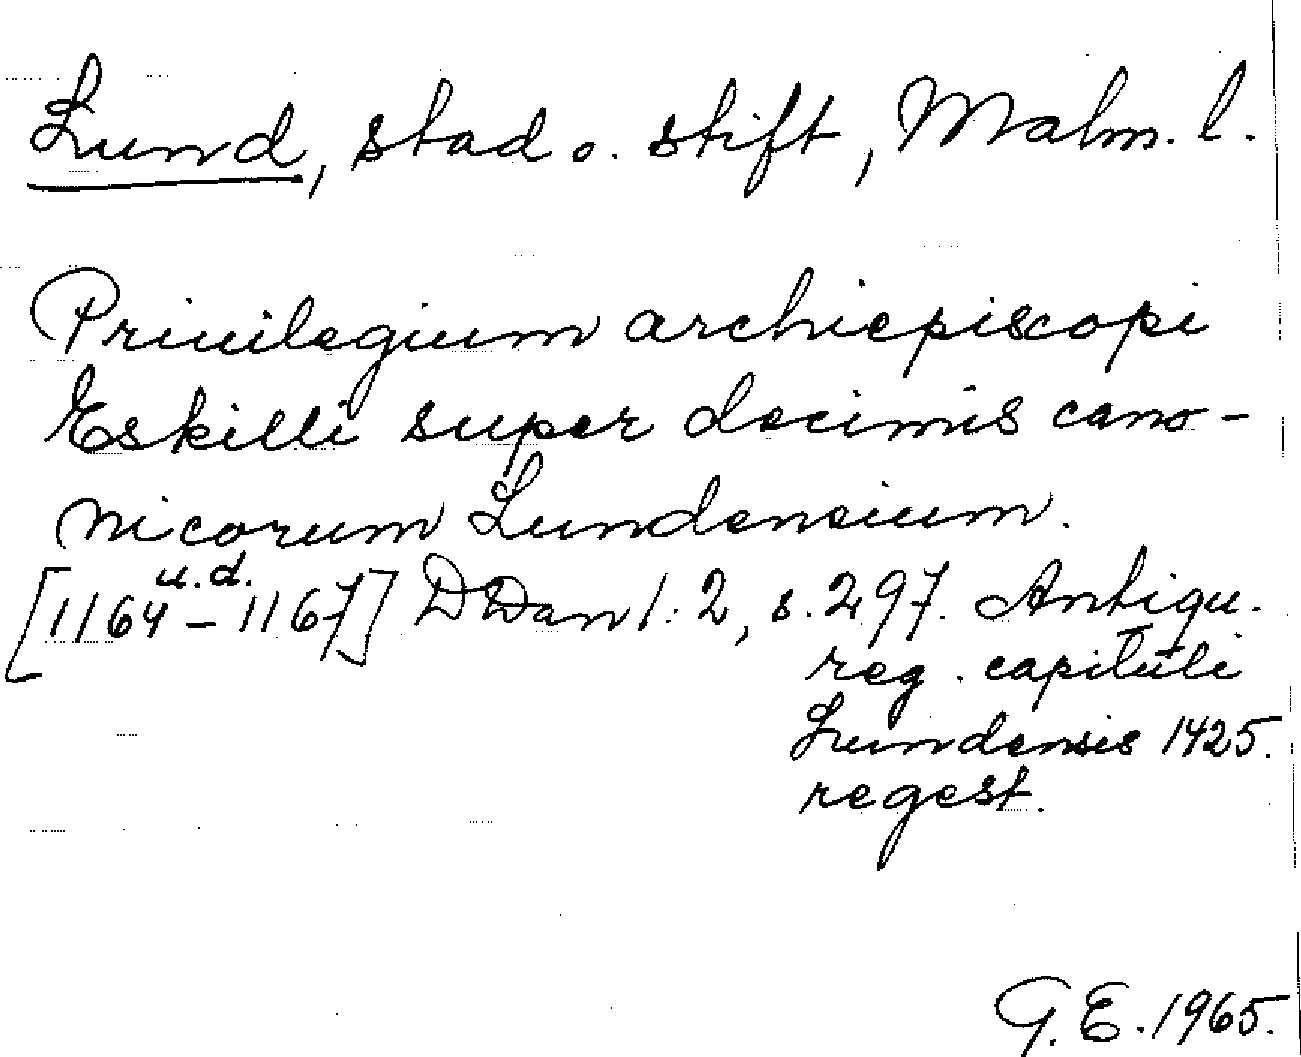 Lund, stad o. stift, Malm. l.
Priuilegium archiepiscopi
Eskilli super decimis cano-
nicorum Lundensium.
u.d.
[1164-1167] DDan 1:2, s. 297. Antiqu.
reg. capituli
Lundensis 1425.
regest.
G.E. 1965.